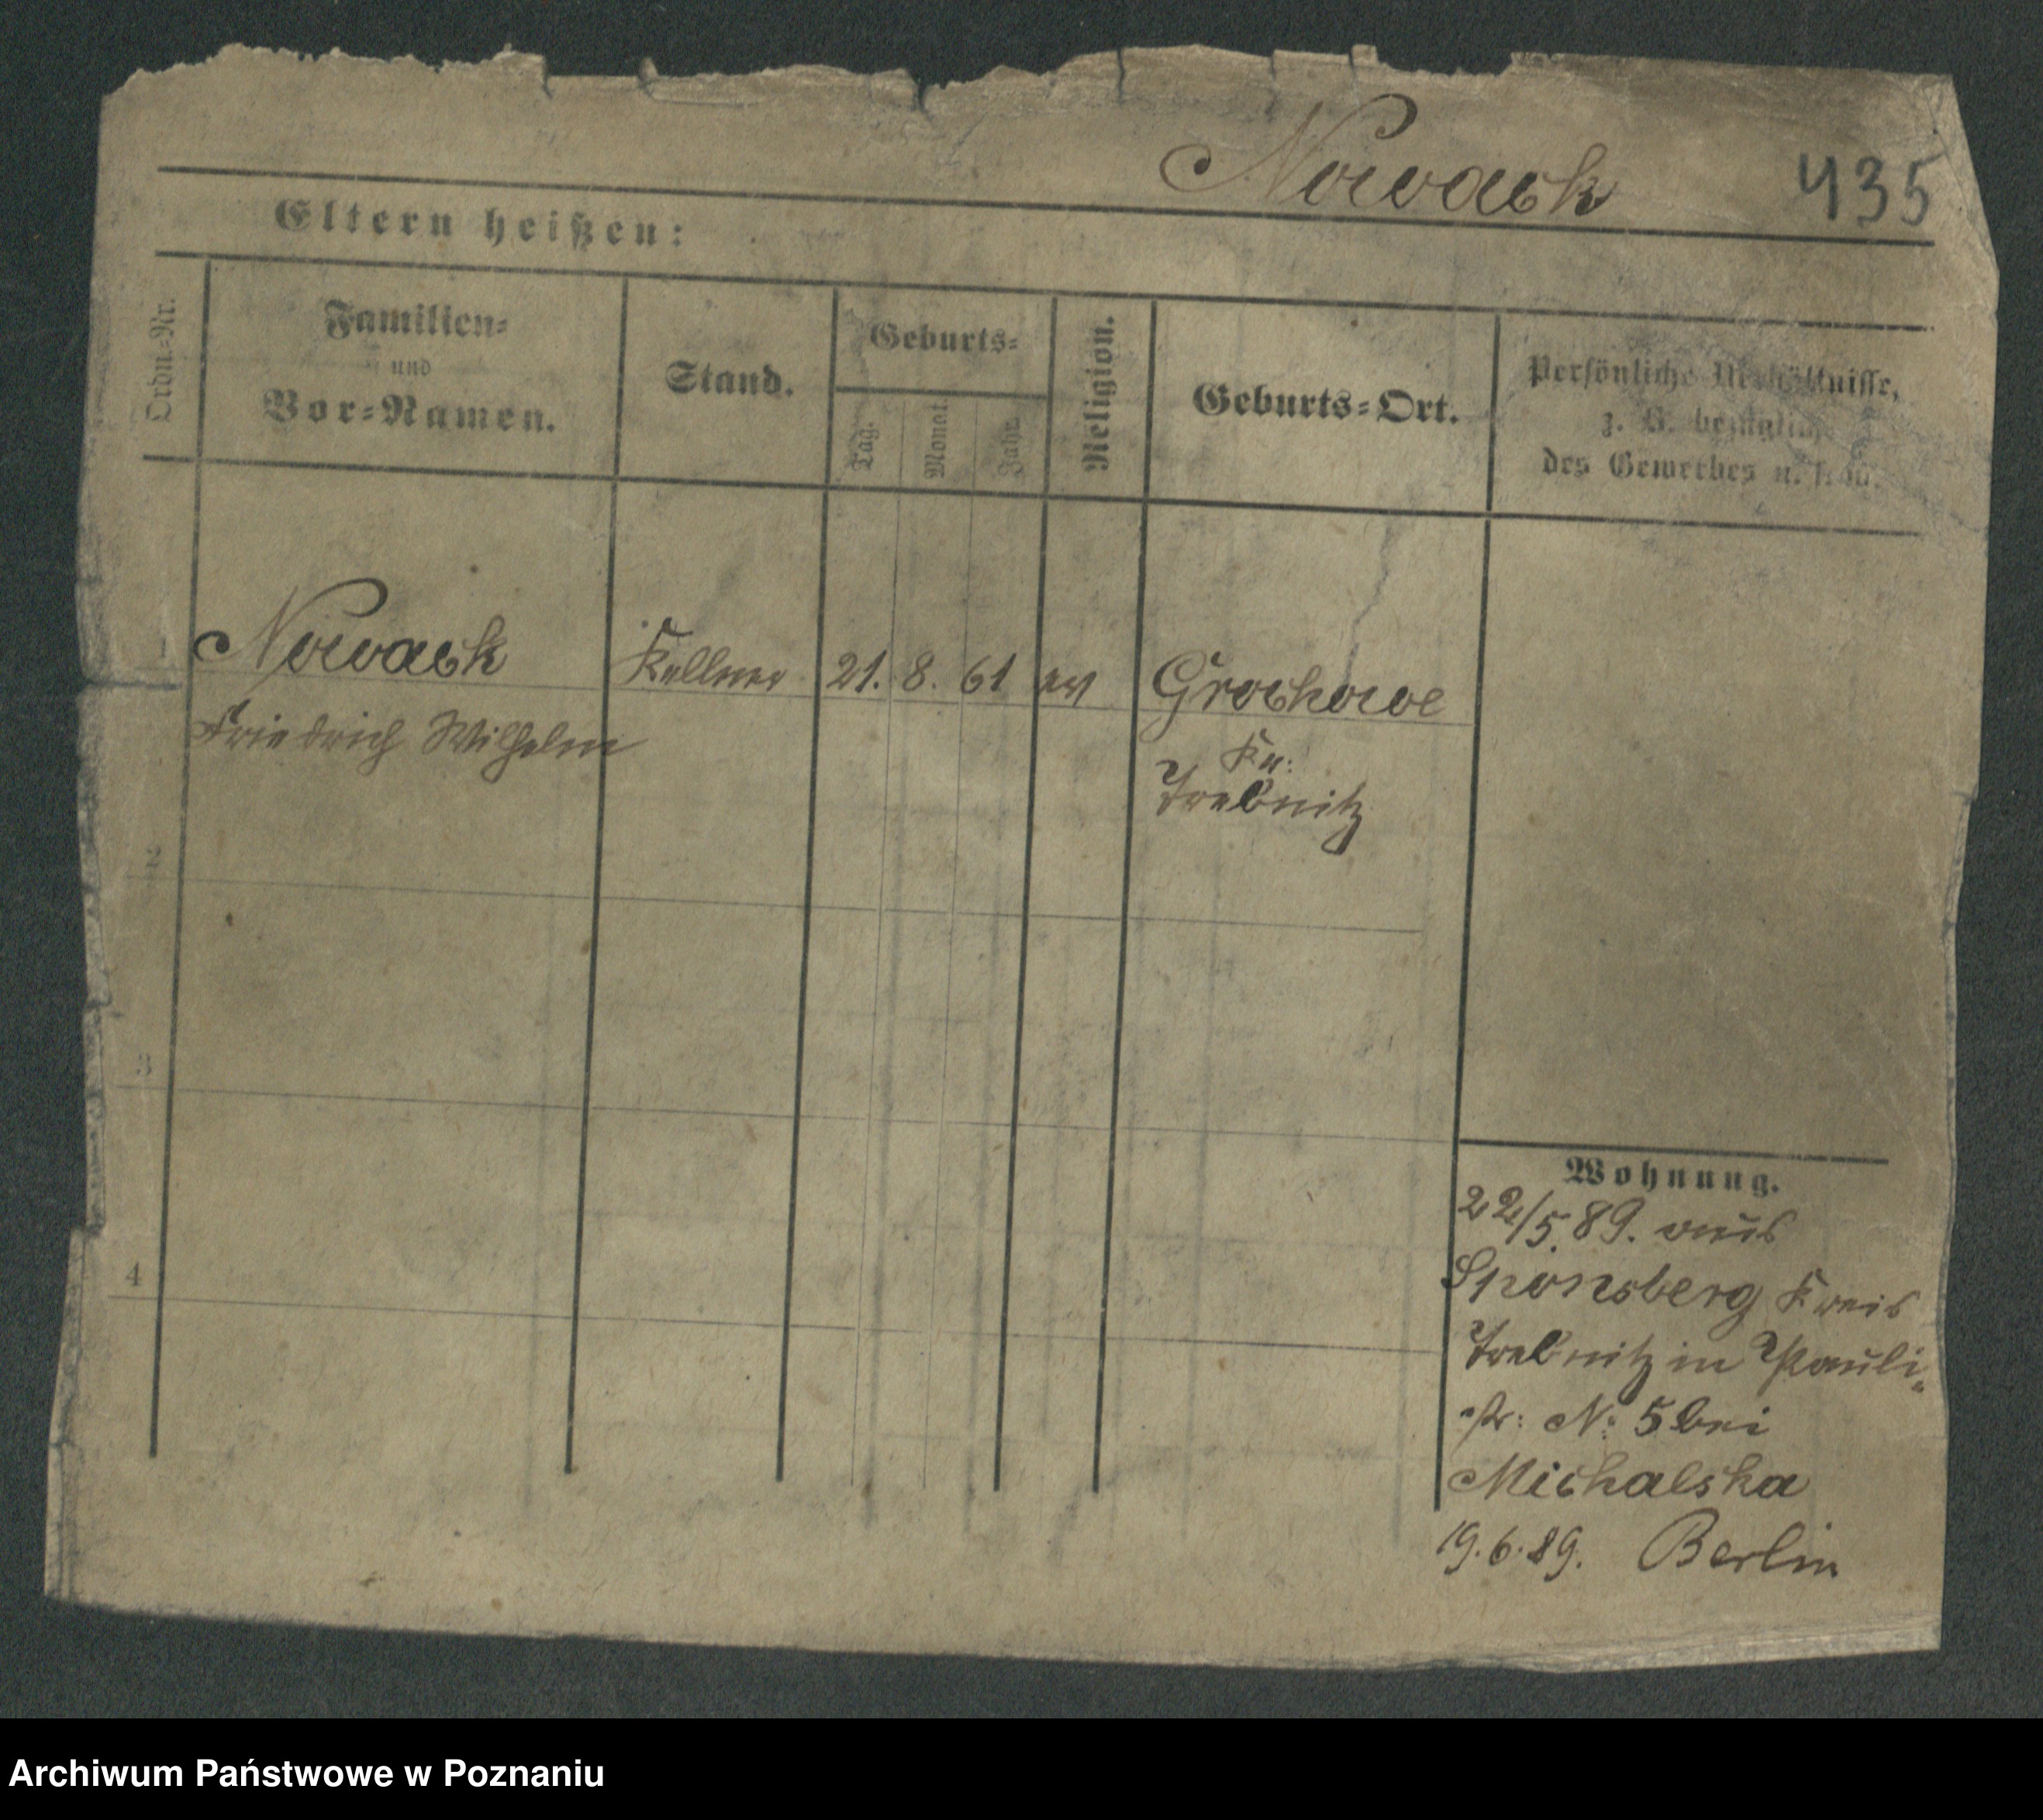 Nowack 435
Eltern heißen:
Ordn.-Nr.
Familien-
und
Vor-Namen.
Stand.
Geburts-
Tag.
Monat.
Jahr.
Religion.
Geburts-Ort.
Persönliche Verhältnisse,
z. B. bezüglich
des Gewerbes u. s. w.
1
Nowack Kellner 21. 8. 61 ev Grochowe
Friedrich Wilhelm
Kr:
Trebnitz
2
3
4
Wohnung.
22/5.89. aus
Sponsberg Kreis
Trebnitz in Pauli-
str: No 5 bei
Michalska
19.6.89. Berlin
Archiwum Państwowe w Poznaniu